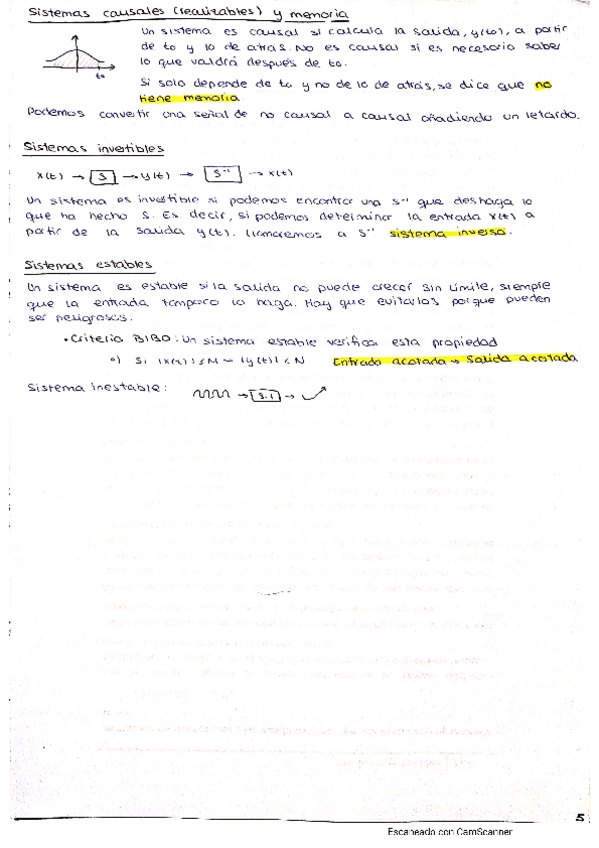 Sistemas causales (realizables) y memoria
Un sistema es causal si calcula la salida, y(t0), a partir
de to y lo de atrás. No es causal si es necesario saber
lo que valdrá después de to.
to
Si solo depende de to y no de lo de atrás, se dice que no
tiene memoria.
Podemos convertir una señal de no causal a causal añadiendo un retardo.
Sistemas invertibles
x(t) → S → y(t) → S⁻¹ → x(t)
Un sistema es invertible si podemos encontrar una S⁻¹ que deshaga lo
que ha hecho S. Es decir, si podemos determinar la entrada x(t) a
partir de la salida y(t). Llamaremos a S⁻¹ sistema inverso.
Sistemas estables
Un sistema es estable si la salida no puede crecer sin límite, siempre
que la entrada tampoco lo haga. Hay que evitarlos porque pueden
ser peligrosos.
• Criterio BIBO: Un sistema estable verifica esta propiedad
o) Si |x(t)| ≤ M → |y(t)| < N Entrada acotada → Salida acotada
Sistema inestable: → S.I → 
5
Escaneado con CamScanner